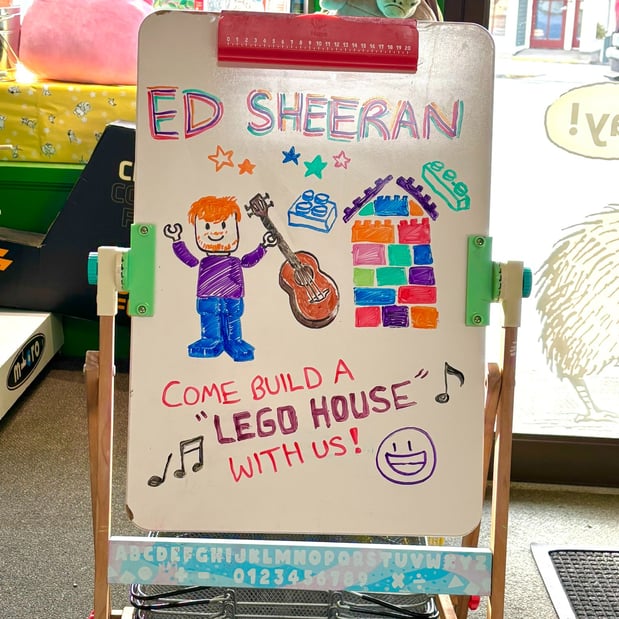 0 1 2 3 4 5 6 7 8 9 10 11 12 13 14 15 16 17 18 19 20
ED SHEERAN
ay!
COME BUILD A
"LEGO HOUSE"
WITH US!
micro
ABCDEFGHIJKLMNOPQRSTUVWXYZ
+ - 0123456789 ×